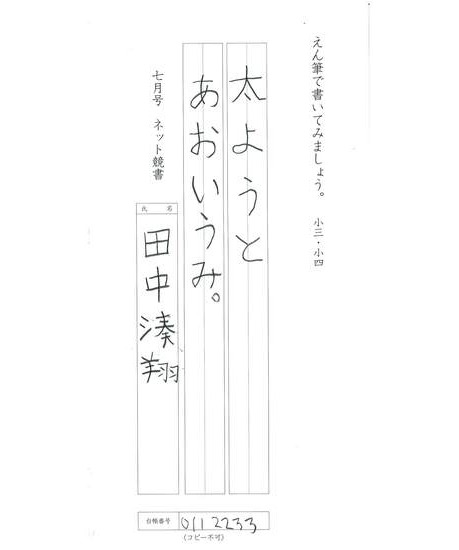 えん筆で書いてみましょう。 小三・小四
太ようと
あおいうみ。
七月号 ネット競書
氏 名
田中湊翔
台帳番号
0112233
(コピー不可)